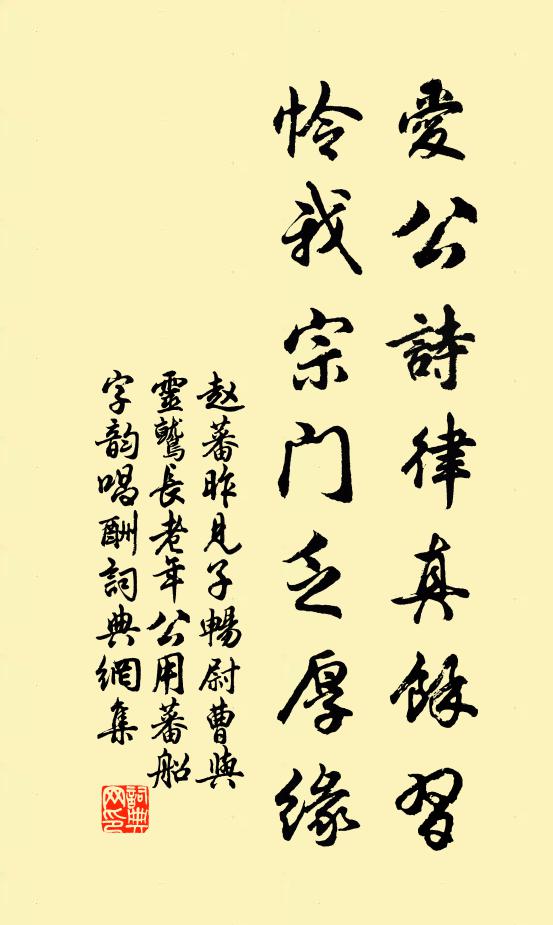 愛公詩律真餘習
怜我宗门乏厚緣
赵蕃昨見子暢尉曹與
靈鷲長老年公用蕃船
字韵唱酬詞典網集
詞典
网印